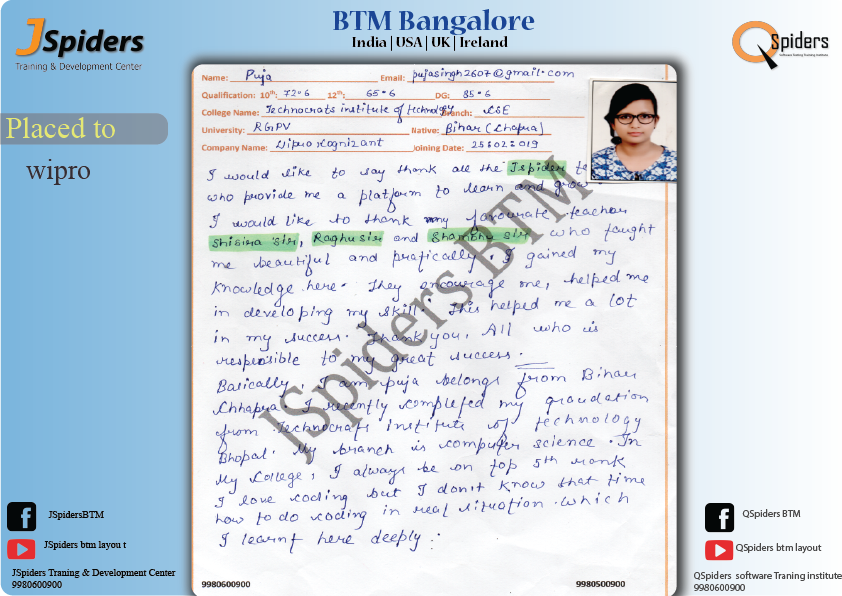 JSpiders
Training & Development Center
BTM Bangalore
India | USA | UK | Ireland
QSpiders
Software Testing Training Institute
Placed to
wipro
Name: Puja Email: pujasingh2607@gmail.com
Qualification: 10th: 72.6 12th: 65.6 DG: 85.6
College Name: Technocrats institute of technology Branch: CSE
University: RGPV Native: Bihar (Chapra)
Company Name: Wipro Cognizant Joining Date: 25022019
I would like to say thank all the Jspider
who provide me a platform to learn and grow.
I would like to thank my favourate teacher
Shisira sir, Raghu sir and Shambhu sir who taught
me beautiful and pratically. I gained my
knowledge here. They encourage me, helped me
in developing my skill. This helped me a lot
in my success. Thank you, All who is
responsible to my great success.
Basically, I am puja belongs from Bihar
Chhapra. I recently completed my graudation
from Technocrats Institute of technology
Bhopal. My branch is computer science. In
My College, I always be on top 5th rank
I love coding but I don't know that time
how to do coding in real situation. which
I learnt here deeply.
JSpiders BTM
9980600900 9980500900
JSpidersBTM
JSpiders btm layou t
JSpiders Traning & Development Center
9980600900
QSpiders BTM
QSpiders btm layout
QSpiders software Traning institute
9980600900